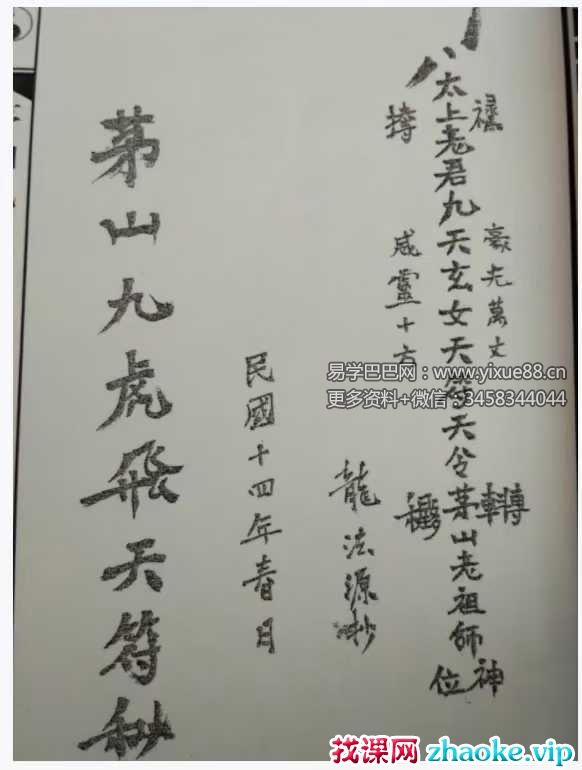 豪光萬丈
轉
太上老君九天玄女天符天令茅山老祖師神位
咸靈十方
龍法源抄
民國十四年春日
茅山九虎飛天符秘
易学巴巴网：www.yixue88.cn
更多资料+微信：3458344044
找课网 zhaoke.vip